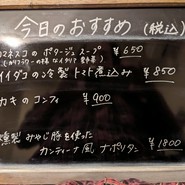 今日のおすすめ (税込)
ロマネスコのポタージュスープ ¥650
イイダコの冷製トマト煮込み ¥850
カキのコンフィ ¥900
燻製みやじ豚を使った
カンティーナ風ナポリタン ¥1800